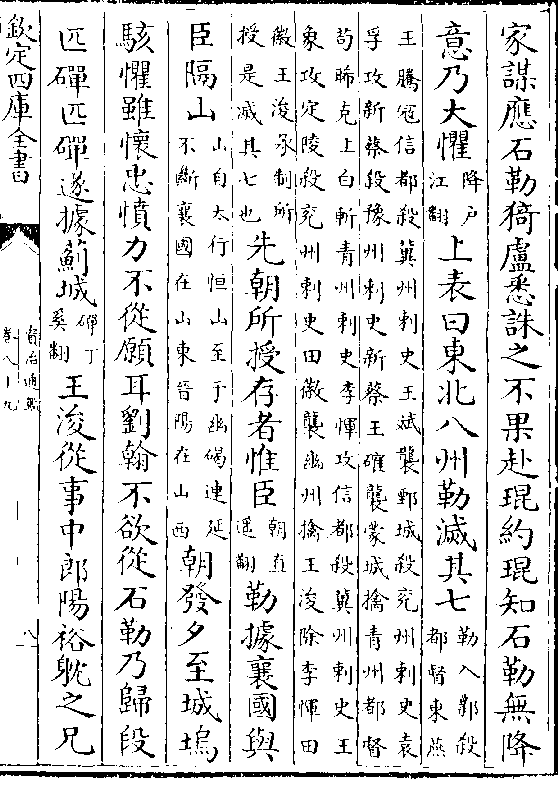 家謀應石勒猗盧悉誅之不果赴琨約琨知石勒無降
意乃大懼降戸江翻上表曰東北八州勒滅其七勒入鄴殺都督東燕
王騰冦信都殺冀州刺史王斌襲鄄城殺兖州刺史袁
孚攻新蔡殺豫州刺史新蔡王確襲蒙城擒青州都督
苟晞克上白斬青州刺史李惲攻信都殺冀州刺史王
象攻定陵殺兖州刺史田徽襲幽州擒王浚除李惲田
徽王浚承制所授是滅其七也先朝所授存者惟臣朝直遥翻勒據襄國與
臣隔山山自太行恒山至于幽碣連延不斷襄國在山東晉陽在山西朝發夕至城塢
駭懼雖懷忠憤力不從願耳劉翰不欲從石勒乃歸段
匹磾匹磾遂據薊城磾丁奚翻王浚從事中郎陽裕躭之兄
欽定四庫全書
資治通鑑
卷八十九
八